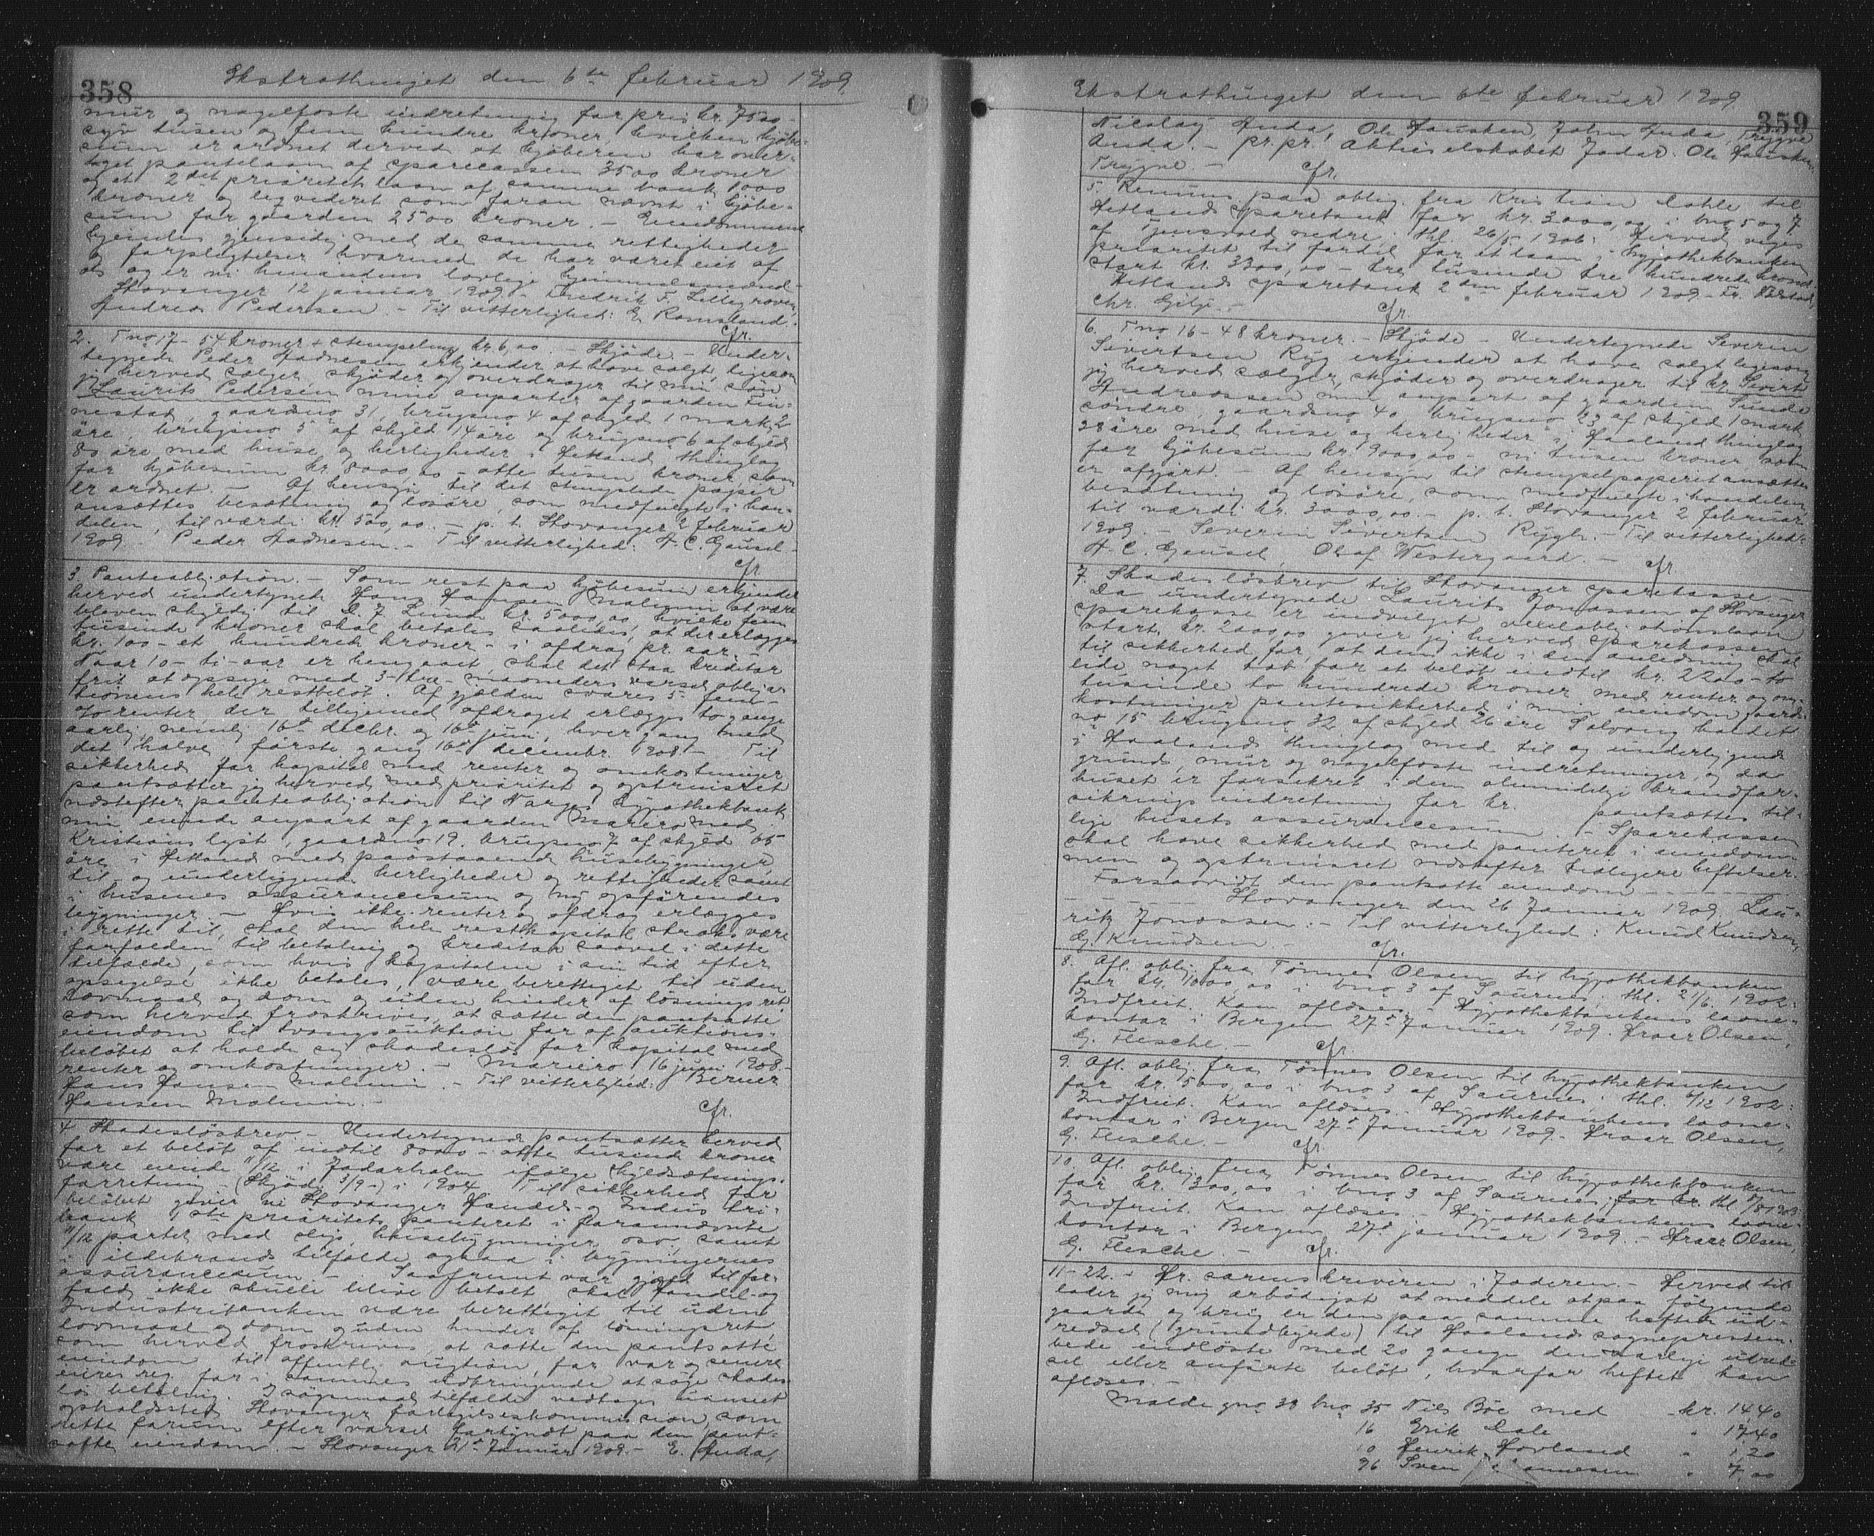 358
Ekstrathinget den 6te februar 1909
mur og nagelfaste indretning for pris kr. 7500 -
syv tusen og fem hundre kroner, hvilken kjøbe-
sum er ordnet derved at kjøberen har over-
taget pantelaan af sparecassen 3500 kroner
og et 2det prioritets laan af samme bank 1000
kroner og lgvederet som foran nævnt i kjøbe-
sum for gaarden 2500 kroner. - Eiendommene
hjemles gjensidig med de samme rettigheder
og forpligtelser hvormed de har været eiet af
os og er vi hinandens lovlige hjemmelsmænd.
Stavanger 12 januar 1909 - Fredrik F. Lilleg raven,
Andreas Pedersen. - Til vitterlighed: E. Ramsland.
cfr.
2. Tno 17 - 54 kroner + stempeling kr. 6,00. - Skjøde. - Under-
tegnede Peder Hadnesen erkjender at have solgt, ligesom
jeg herved sælger, skjøder og overdrager til min søn
Laurits Pedersen mine anparter af gaarden Fin-
nestad, gaardsno 31, brugsno 4 af skyld 1 mark, 2
øre, brugsno 5 af skyld 14 øre og brugsno 6 af skyld
80 øre med huse og herligheder i Hetland thinglag
for kjøbesum kr. 8000,00 - otte tusen kroner som
er ordnet. - Af hensyn til det stemplede papir
ansættes besætning og løsøre, som medfulgte i han-
delen, til værdi kr. 500,00. - p. t. Stavanger 2 februar
1909. Peder Hadnesen. - Til vitterlighed: H. C. Gausel -
cfr.
3. Panteobligation. - Som rest paa kjøbesum erkjender
herved undertegnede Hans Hansen Malmin at være
bleven skyldig til D. J. Lund kr. 5000,00 hvilke fem
tusinde kroner skal betales saaledes, at der erlægges
kr. 100 - et hundrede kroner - i afdrag pr. aar. -
Naar 10 - ti - aar er hengaaet, skal det staa kreditor
frit at opsige med 3 - tre - maaneders varsel obliga-
tionens hele restbeløb. Af gjælden svares 5 - fem -
% renter, der tilligemed afdraget erlægges to gange
aarlig, nemlig 16d decbr. og 16d juni, hver gang med
det halve, første gang 16d decembr. 1908 - Til
sikkerhed for kapital med renter og omkostninger
pantsætter jeg herved med prioritet og optrinsret
næstefter panteobligation til Norges hypothekbank
min eiende anpart af gaarden Mariero med
Kristianslyst, gaardsno 19. brugsno 7 af skyld 65
øre, i Hetland med paastaaende husebygninger,
til - og underliggende herligheder og rettigheder samt
i husenes assurancesum og nu opførendes
bygninger. - Hvis ikke renter og afdrag erlægges
i rette tid, skal den hele restkapital straks være
forfalden til betaling og kreditor saavel i dette
tilfælde, som hvis kapitalen i sin tid efter
opsigelse ikke betales, være berettiget til uden
lovmaal og dom og uden hinder af løsningsret
som herved fraskrives, at sætte den pantsatte
eiendom til tvangsauktion for af auktions-
beløbet at holde sig skadesløs for kapital med
renter og omkostninger. - Mariero 16 juni 1908 -
Hans Hansen Malmin. - Til vitterlighed: Berner
Hansen Malmin. -
cfr.
4. Skadesløsbrev. - Undertegnede pantsætter herved
for et beløb af indtil 8000 - otte tusinde kroner
vore eiende 11/12 i Jadarholm ifølge skyldsætnings-
forretning (Skjøde 3/9 -) i 1904 Til sikkerhed for
beløbet giver vi Stavanger Handels og Industri-
bank 1ste prioritets panteret i forannævnte
11/12 parter, med slip, husebygninger, osv, samt
i ildebrands tilfælde ogsaa i bygningernes
assurancesum. - Saafremt vor gjæld til for-
fald ikke skulle blive betalt skal Handel- og
Industribanken være berettiget til uden
lovmaal og dom og uden hinder af løsningsret
som herved fraskrives, at sætte den pantsatte
eiendom til offentlig auktion, for var og senere
eieres reg. for i sammes udbringende at søge skades-
løs betaling. I søgsmaalstilfælde vedtages uanset
opholdssted Stavanger forligelseskommission som
rette forum efter varsel forkyndt paa den pant-
satte eiendom. - Stavanger 21d Januar 1909. - E. Anda,
359
Ekstrathinget den 6te februar 1909
Nicolay Anda, Ole Hausken, John Anda, Trygve
Anda. - pr. pr. Aktieselskabet Jadar. Ole Hausken,
Trygve. -
cfr.
5. Renuns paa oblig. fra Kristian Dahle til
Hetlands sparebank for kr. 3000,00 i bno 5 og 7
af Tjensvold nedre. thl. 26/5 1906: Herved viges
prioritet til fordel for et laan i hypothekbanken
stort kr. 3300,00 - tre tusinde tre hundrede kroner
Hetlands sparebank 2den februar 1909 - Fr. Næstad,
Chr. Gilje. -
cfr.
6. Tno 16 - 48 kroner. - Skjøde - Undertegnede Severin
Sivertsen Ryg erkjender at have solgt ligesom
jeg herved sælger, skjøder og overdrager til hr. Sivert
Andreassen min anpart af gaarden Sunde
søndre, gaardsno 40 brugsno 23 af skyld 1 mark
28 øre med huse og herligheder i Haaland thinglag
for kjøbesum kr. 9000,00 - ni tusen kroner som
er afgjort. - Af hensyn til stempelpapiret ansættes
besætning og løsøre, som medfulgte i handelen,
til værdi kr. 3000,00. - p. t. Stavanger 2 februar
1909. - Severin Sivertsen Rygh. - Til vitterlighed:
H. C. Gausel, Olaf Westergaard. -
cfr.
7. Skadesløsbrev til Stavanger sparekasse -
Da undertegnede Laurits Jonassen af Stavanger
sparekasse er indvilget vekselobligationslaan
stort kr. 2000,00 giver jeg herved sparekassen
til sikkerhed for, at den ikke i den anledning skal
lide noget tab for et beløb indtil kr. 2200 - to
tusinde to hundrede kroner med renter og om-
kostninger pantesikkerhed i min eiendom gaards-
no 15 brugsno 32 af skyld 26 øre Solvang kaldet
i Haalands thinglag med til og underliggende
grund, mur og nagelfaste indretninger, og da
huset er forsikret i den almindelige brandfor-
sikrings indretning for kr. pantsættes til-
lige husets assurancesum. - Sparekassen
skal have sikkerhed med panteret i eiendom-
men og optrinsret næstefter tidligere heftelser.
Forsaavidt den pantsatte eiendom - - - - -
- - - - - Stavanger den 26 Januar 1909. Lau-
rits Jonassen. Til vitterlighed: Knud Knudsen,
G. Knudsen. -
cfr.
8. Afl. oblig. fra Tønnes Olsen til hypothekbanken
for kr. 1000,00 i bno 3 af Saurnes. thl. 21/6 1902:
Indfriet. Kan aflæses. Hypothekbankens laane-
kontor i Bergen 27d Januar 1909. Hroar Olsen,
G. Flesche. -
cfr.
9. Afl. oblig. fra Tønnes Olsen til hypothekbanken
for kr. 500,00 i bno 3 af Saurnes. thl. 6/12 1902:
Indfriet. Kan aflæses. Hypothekbankens laane-
kontor i Bergen 27d Januar 1909. Hroar Olsen,
G. Flesche. -
cfr.
10. Afl. oblig. fra Tønnes Olsen til hypothekbanken
for kr. 1300,00 i bno 3 af Saurnes, for kr. thl. 8/8 1903
Indfriet. Kan aflæses. - Hypothekbankens laane-
kontor i Bergen 27d januar 1909. - Hroar Olsen,
G. Flesche -
cfr.
11 - 22. - Hr. sorenskriveren i Jæderen. - Herved til-
lader jeg mig ærbødigst at meddele at paa følgende
gaarde og brug er den paa samme heftende ud-
redsel (grundbyrde) til Haalands sogneprestem-
bede indløste med 20 gange den aarlige udred-
sel eller anførte beløb, hvorfor heftet kan
aflæses. -
Malde gno 38 bno 35 Nils Bøe med - kr. 14.40
16 Erik Dale " 17.40
10 Henrik Hovland " 1,20
26 Sven " 7,00